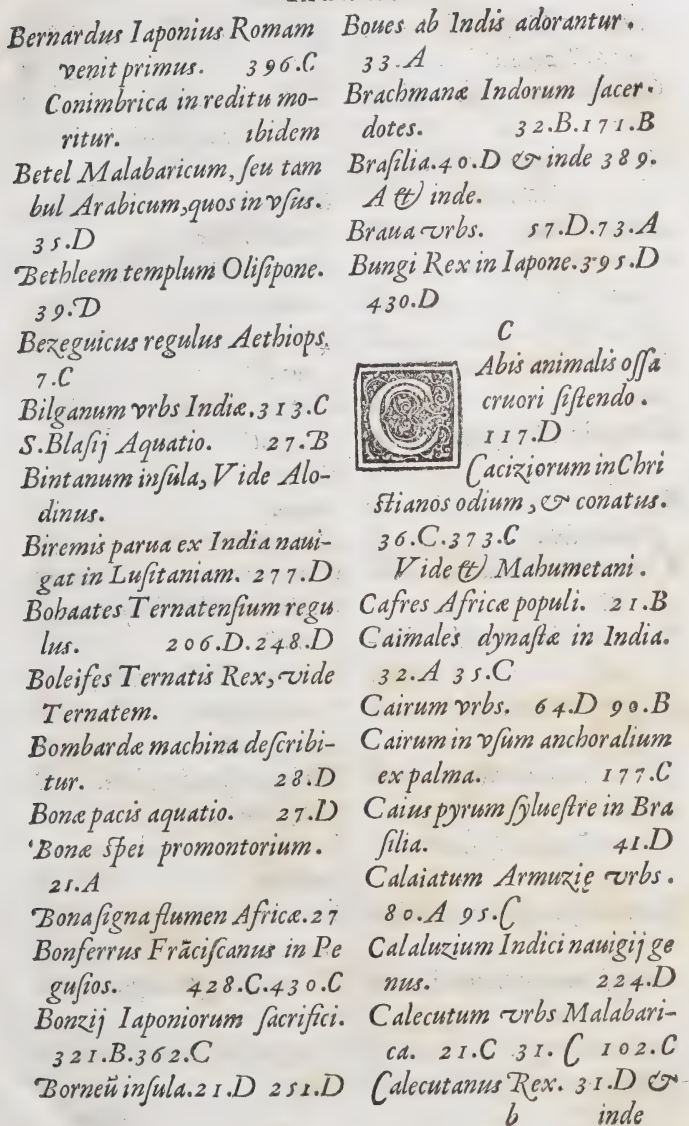 Bernardus Iaponius Romam
venit primus. 396.C
Conimbrica in reditu mo-
ritur. ibidem
Betel Malabaricum, ſeu tam
bul Arabicum, quos in vſus.
35.D
Bethleem templum Oliſipone.
39.D
Bezeguicus regulus Aethiops.
7.C
Bilganum vrbs Indiæ. 313.C
S. Blaſij Aquatio. 27.B
Bintanum inſula, Vide Alo-
dinus.
Biremis parua ex India naui-
gat in Luſitaniam. 277.D
Bohaates Ternatenſium regu
lus. 206.D. 248.D
Boleifes Ternatis Rex, vide
Ternatem.
Bombardæ machina deſcribi-
tur. 28.D
Bonæ pacis aquatio. 27.D
Bonæ ſpei promontorium.
21.A
Bona ſigna flumen Africæ. 27
Bonferrus Frãciſcanus in Pe
guſios. 428.C. 430.C
Bonzij Iaponiorum ſacrifici.
321.B. 362.C
Borneũ inſula. 21.D 251.D
Boues ab Indis adorantur.
33.A
Brachmanæ Indorum ſacer-
dotes. 32.B. 171.B
Braſilia. 40.D & inde 389.
A & inde.
Braua vrbs. 57.D. 73.A
Bungi Rex in Iapone. 395.D
430.D
C
CAbis animalis oſſa
cruori ſiſtendo.
117.D
Caciziorum in Chri
ſtianos odium, & conatus.
36.C. 373.C
Vide & Mahumetani.
Cafres Africæ populi. 21.B
Caimales dynaſtæ in India.
32.A 35.C
Cairum vrbs. 64.D 90.B
Cairum in vſum anchoralium
ex palma. 177.C
Caius pyrum ſylueſtre in Bra
ſilia. 41.D
Calaiatum Armuzię vrbs.
80.A 95.C
Calaluzium Indici nauigij ge
nus. 224.D
Calecutum vrbs Malabari-
ca. 21.C 31.C 102.C
Calecutanus Rex. 31.D &
b inde